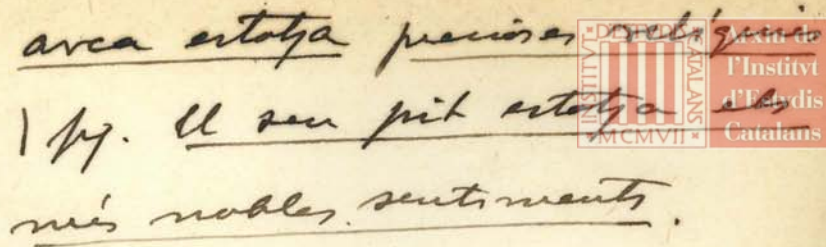 arca estotja precioses relíquies
| fig. El seu pit estotja els
més nobles sentiments.
INSTITVT D'ESTVDIS CATALANS
MCMVII
Arxiu de
l'Institvt
d'Estvdis
Catalans